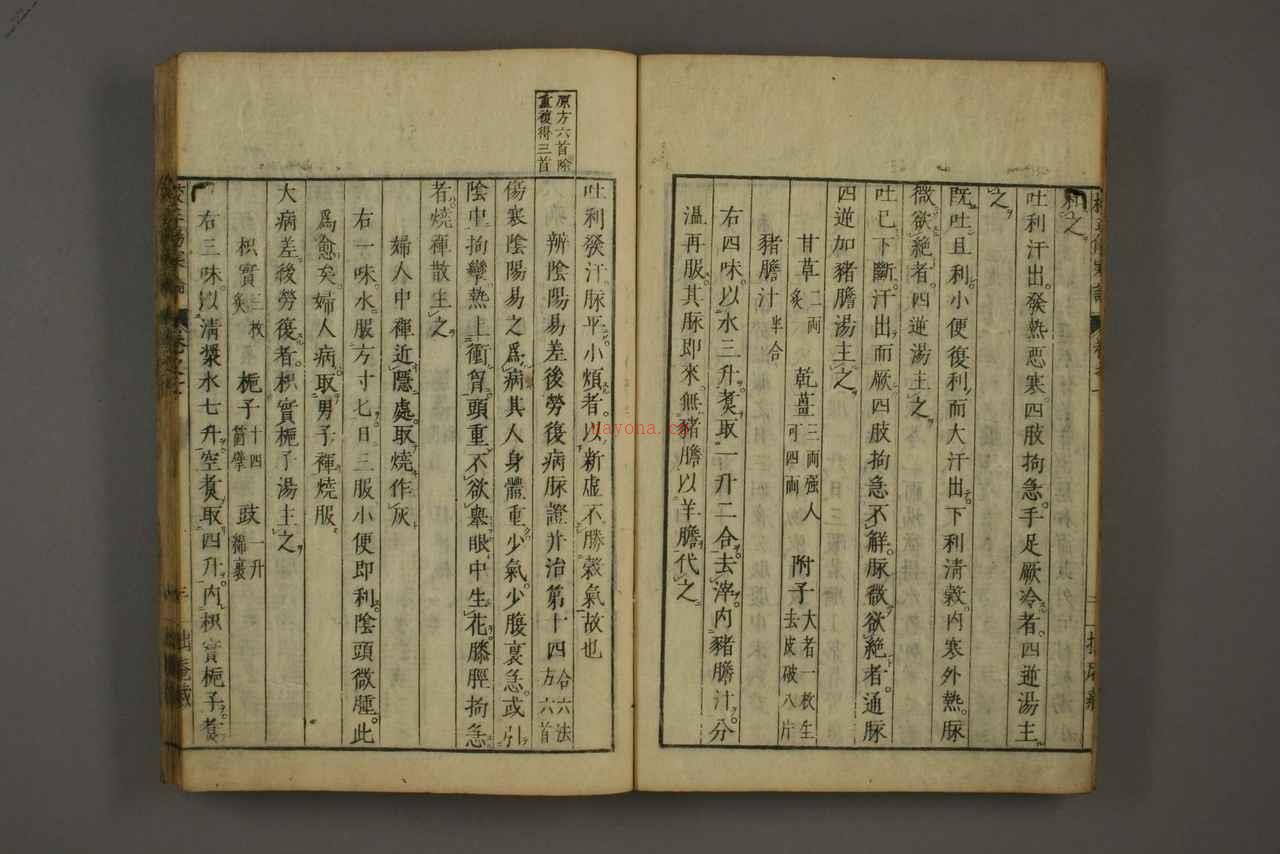 和之
吐利汗出發熱惡寒四肢拘急手足厥冷者四逆湯主
之
既吐且利小便復利而大汗出下利清穀内寒外熱脉
微欲絶者四逆湯主之
吐已下斷汗出而厥四肢拘急不解脉微欲絶者通脉
四逆加豬膽湯主之
甘草二兩炙 乾薑三兩強人可四兩 附子大者一枚生去皮破八片
豬膽汁半合
右四味以水三升煑取一升二合去滓内豬膽汁分
温再服其脉即來無豬膽以羊膽代之
原方六首除
重復得三首
吐利發汗脉平小煩者以新虚不勝穀氣故也
辨陰陽易差後勞復病脉證并治第十四合六法方六首
傷寒陰陽易之爲病其人身體重少氣少腹裏急或引
陰中拘攣熱上衝胷頭重不欲舉眼中生花膝脛拘急
者燒裈散主之
婦人中裈近隱處取燒作灰
右一味水服方寸匕日三服小便即利陰頭微腫此
爲愈矣婦人病取男子裈燒服
大病差後勞復者枳實梔子湯主之
枳實三枚炙 梔子十四箇擘 豉一升綿裹
右三味以清漿水七升空煑取四升内枳實梔子煑
nayona.cn